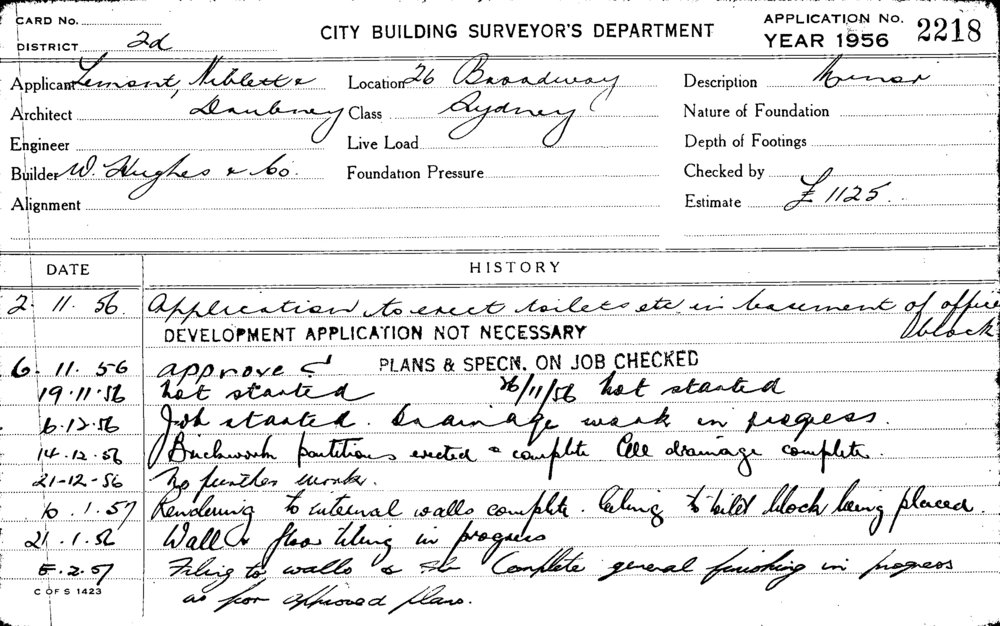 CARD No.
DISTRICT 2d
CITY BUILDING SURVEYOR'S DEPARTMENT
APPLICATION No. 2218
YEAR 1956
Applicant Lemont, Niblett &
Architect Daubney
Engineer
Builder W. Hughes & Co.
Alignment
Location 26 Broadway
Class Sydney
Live Load
Foundation Pressure
Description Minor
Nature of Foundation
Depth of Footings
Checked by
Estimate £ 1125
DATE HISTORY
2. 11. 56. Application to erect toilets etc in basement of office
block
DEVELOPMENT APPLICATION NOT NECESSARY
6. 11. 56 approved PLANS & SPECN. ON JOB CHECKED
19.11.56 Not started 26/11/56 Not started
6.12.56 Job started. Drainage work in progress.
14.12.56 Brickwork partitions erected & complete All drainage complete.
21-12-56 No further work.
10.1.57 Rendering to internal walls complete. Ceiling to toilet block being placed.
21.1.56 Wall & floor tiling in progress
5.2.57 Tiling to walls & Complete general finishing in progress
as per approved plans.
C OF S 1423